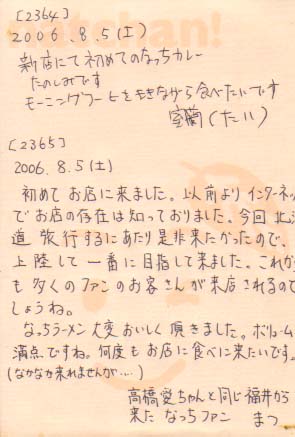 [2364]
2006.8.5(土)
新店にて初めてのなっちカレー
たのしみです
モーニングコーヒーをききながら食べたいです
室蘭(たい)
[2365]
2006.8.5(土)
初めてお店に来ました。以前よりインターネッ
でお店の存在は知っておりました。今回北海
道旅行するにあたり是非来たかったので、
上陸して一番に目指して来ました。これか
も多くのファンのお客さんが来店されるので
しょうね。
なっちラーメン大変おいしく頂きました。ボリューム
満点ですね。何度もお店に食べに来たいです。
(なかなか来れませんが……)
高橋愛ちゃんと同じ福井から
来た なっちファン まつ